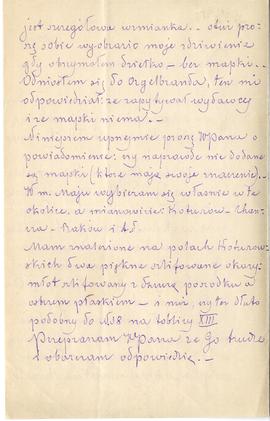 jest szczegółowa wzmianka. - otóż pro-
szę sobie wyobrazić moje zdziwienie
gdy otrzymałem dziełko - bez mapki. -
Odniosłem się do Orgelbranda, ten mi
odpowiedział: że zapytywał wydawcę
i że mapki niema. -
Niniejszem uprzejmie proszę WPana o
powiadomienie, czy naprawdę nie dodane
są mapki (które mają swoje znaczenie). -
W m. Maju wybieram się właśnie w te
okolice, a mianowicie: Koturów-
Raków i t.d.
Mam znalezione na polach Koturow-
skich dwa piękne szlifowane okazy.
młot szlifowany z dziurą pośrodku a
ostrzem płaskiem - i nuż, czy też dłuto
podobny do №38 na tablicy XIII
Przepraszam WPana że Go trudzę
i obarczam odpowiedzią. -